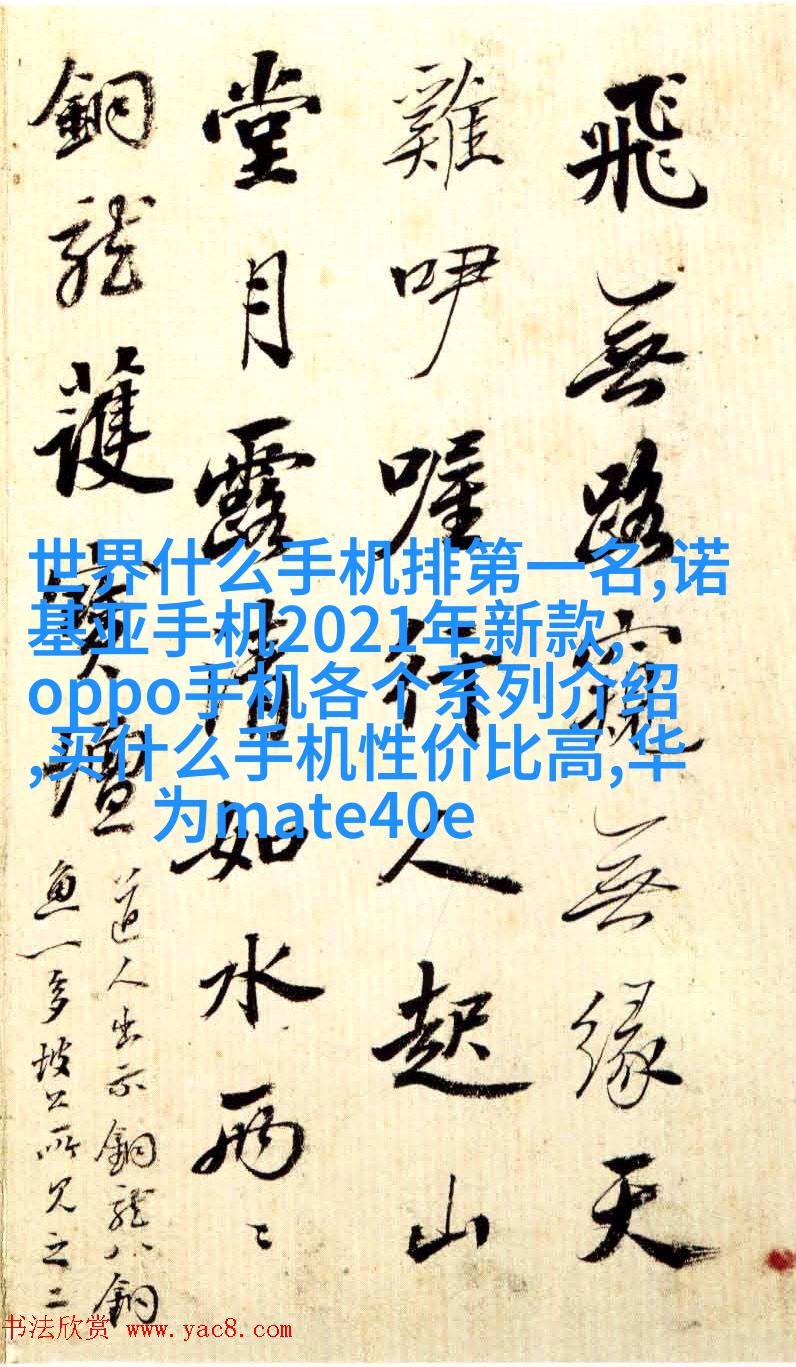 飛無路窺無緣天
雞咿喔行人起山
堂月露清如水兩々
銅龍護寶壇
道人出示銅龍銅
魚一多坡公所見之二
世界什么手机排第一名,诺
基亚手机2021年新款,
oppo手机各个系列介绍
,买什么手机性价比高,华
为mate40e
书法欣赏 www.yac8.com